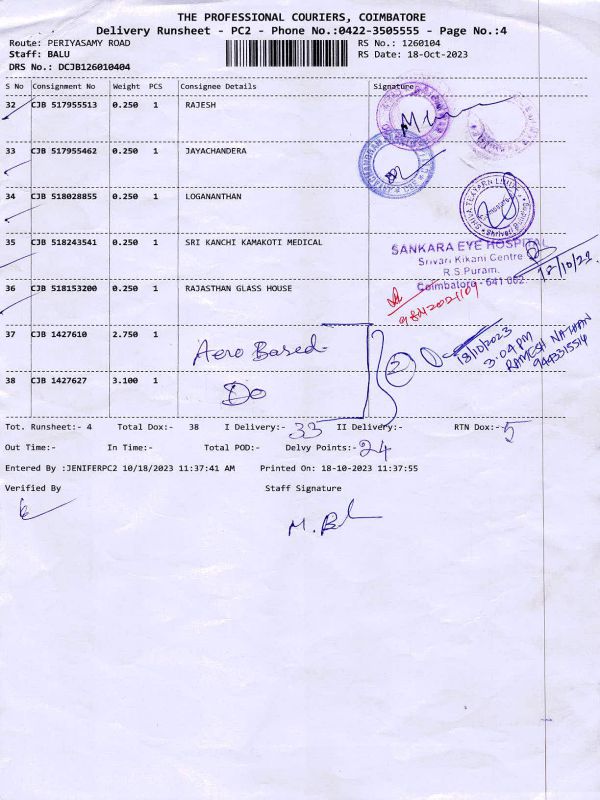 THE PROFESSIONAL COURIERS, COIMBATORE
Delivery Runsheet - PC2 - Phone No.:0422-3505555 - Page No.:4
Route: PERIYASAMY ROAD
RS No.: 1260104
Staff: BALU
RS Date: 18-Oct-2023
DRS No.: DCJB126010404
S No Consignment No Weight PCS Consignee Details Signature
32 CJB 517955513 0.250 1 RAJESH
33 CJB 517955462 0.250 1 JAYACHANDERA
34 CJB 518028855 0.250 1 LOGANANTHAN
35 CJB 518243541 0.250 1 SRI KANCHI KAMAKOTI MEDICAL
SANKARA EYE HOSPITAL
Srivari Kikani Centre
R.S.Puram,
Coimbatore - 641 002
36 CJB 518153200 0.250 1 RAJASTHAN GLASS HOUSE
37 CJB 1427610 2.750 1 Aero Based
38 CJB 1427627 3.100 1 Do
2
18/10/2023
3:04 PM
RAMESH NATHAN
9443315514
Tot. Runsheet:- 4 Total Dox:- 38 I Delivery:- 33 II Delivery:- RTN Dox:- 5
Out Time:- In Time:- Total POD:- Delvy Points:- 24
Entered By :JENIFERPC2 10/18/2023 11:37:41 AM Printed On: 18-10-2023 11:37:55
Verified By Staff Signature